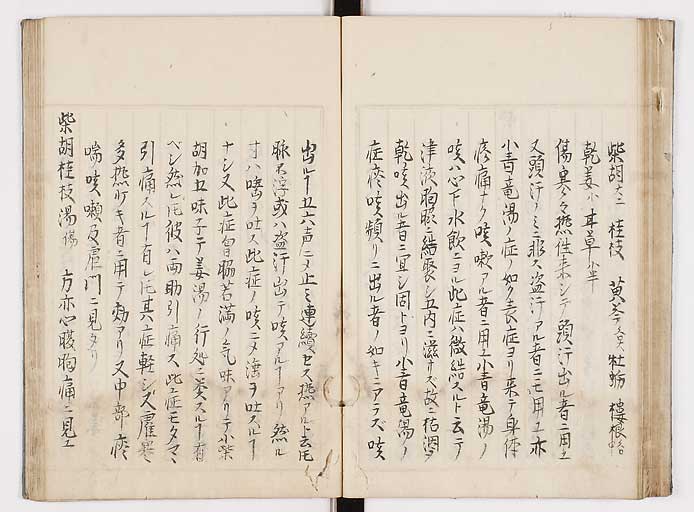 柴胡 桂枝 黄芩 牡蛎 樓根
乾姜小 甘草
傷寒 熱往来シテ頭汗出ル者ニ用ユ
又頭汗ノミ非ス盗汗アル者ニモ用ユ亦
小青竜湯ノ症ノ如ク表症ヨリ来テ身体
疼痛ナク咳嗽アル者ニ用ユ小青竜湯ノ
咳ハ心下水飲ニヨル此症ハ微結スルト云テ
津液胸脇ニ結聚シ五内ニ滋サズ故ニ枯涸
乾咳出ル者ニ宜シ因ヨリ小青竜湯ノ
症咳頻リニ出ル者ノ如キニアラズ咳
出ルヿ五六声ニメ止ミ連續セス熱アルト云ヘ𪜈
脉不浮或ハ盗汗出テ咳アルヿアリ然ル
オハ唾ヲ吐ス此症ノ咳ニメ唾ヲ吐スルヿ
ナシ又此症胸脇苦満ノ気味アリテ小柴
胡加五味子テ姜湯ノ行処ニ類スルヿ有
ベシ然レ𪜈彼ハ両肋引痛ス此症モタマ〻
引痛スルヿ有レ𪜈其症軽シ
多熱少キ者ニ用テ効アリ又中部ノ
喘咳嗽 門ニ見タリ
柴胡桂枝湯 方亦心腹胸痛ニ見ユ